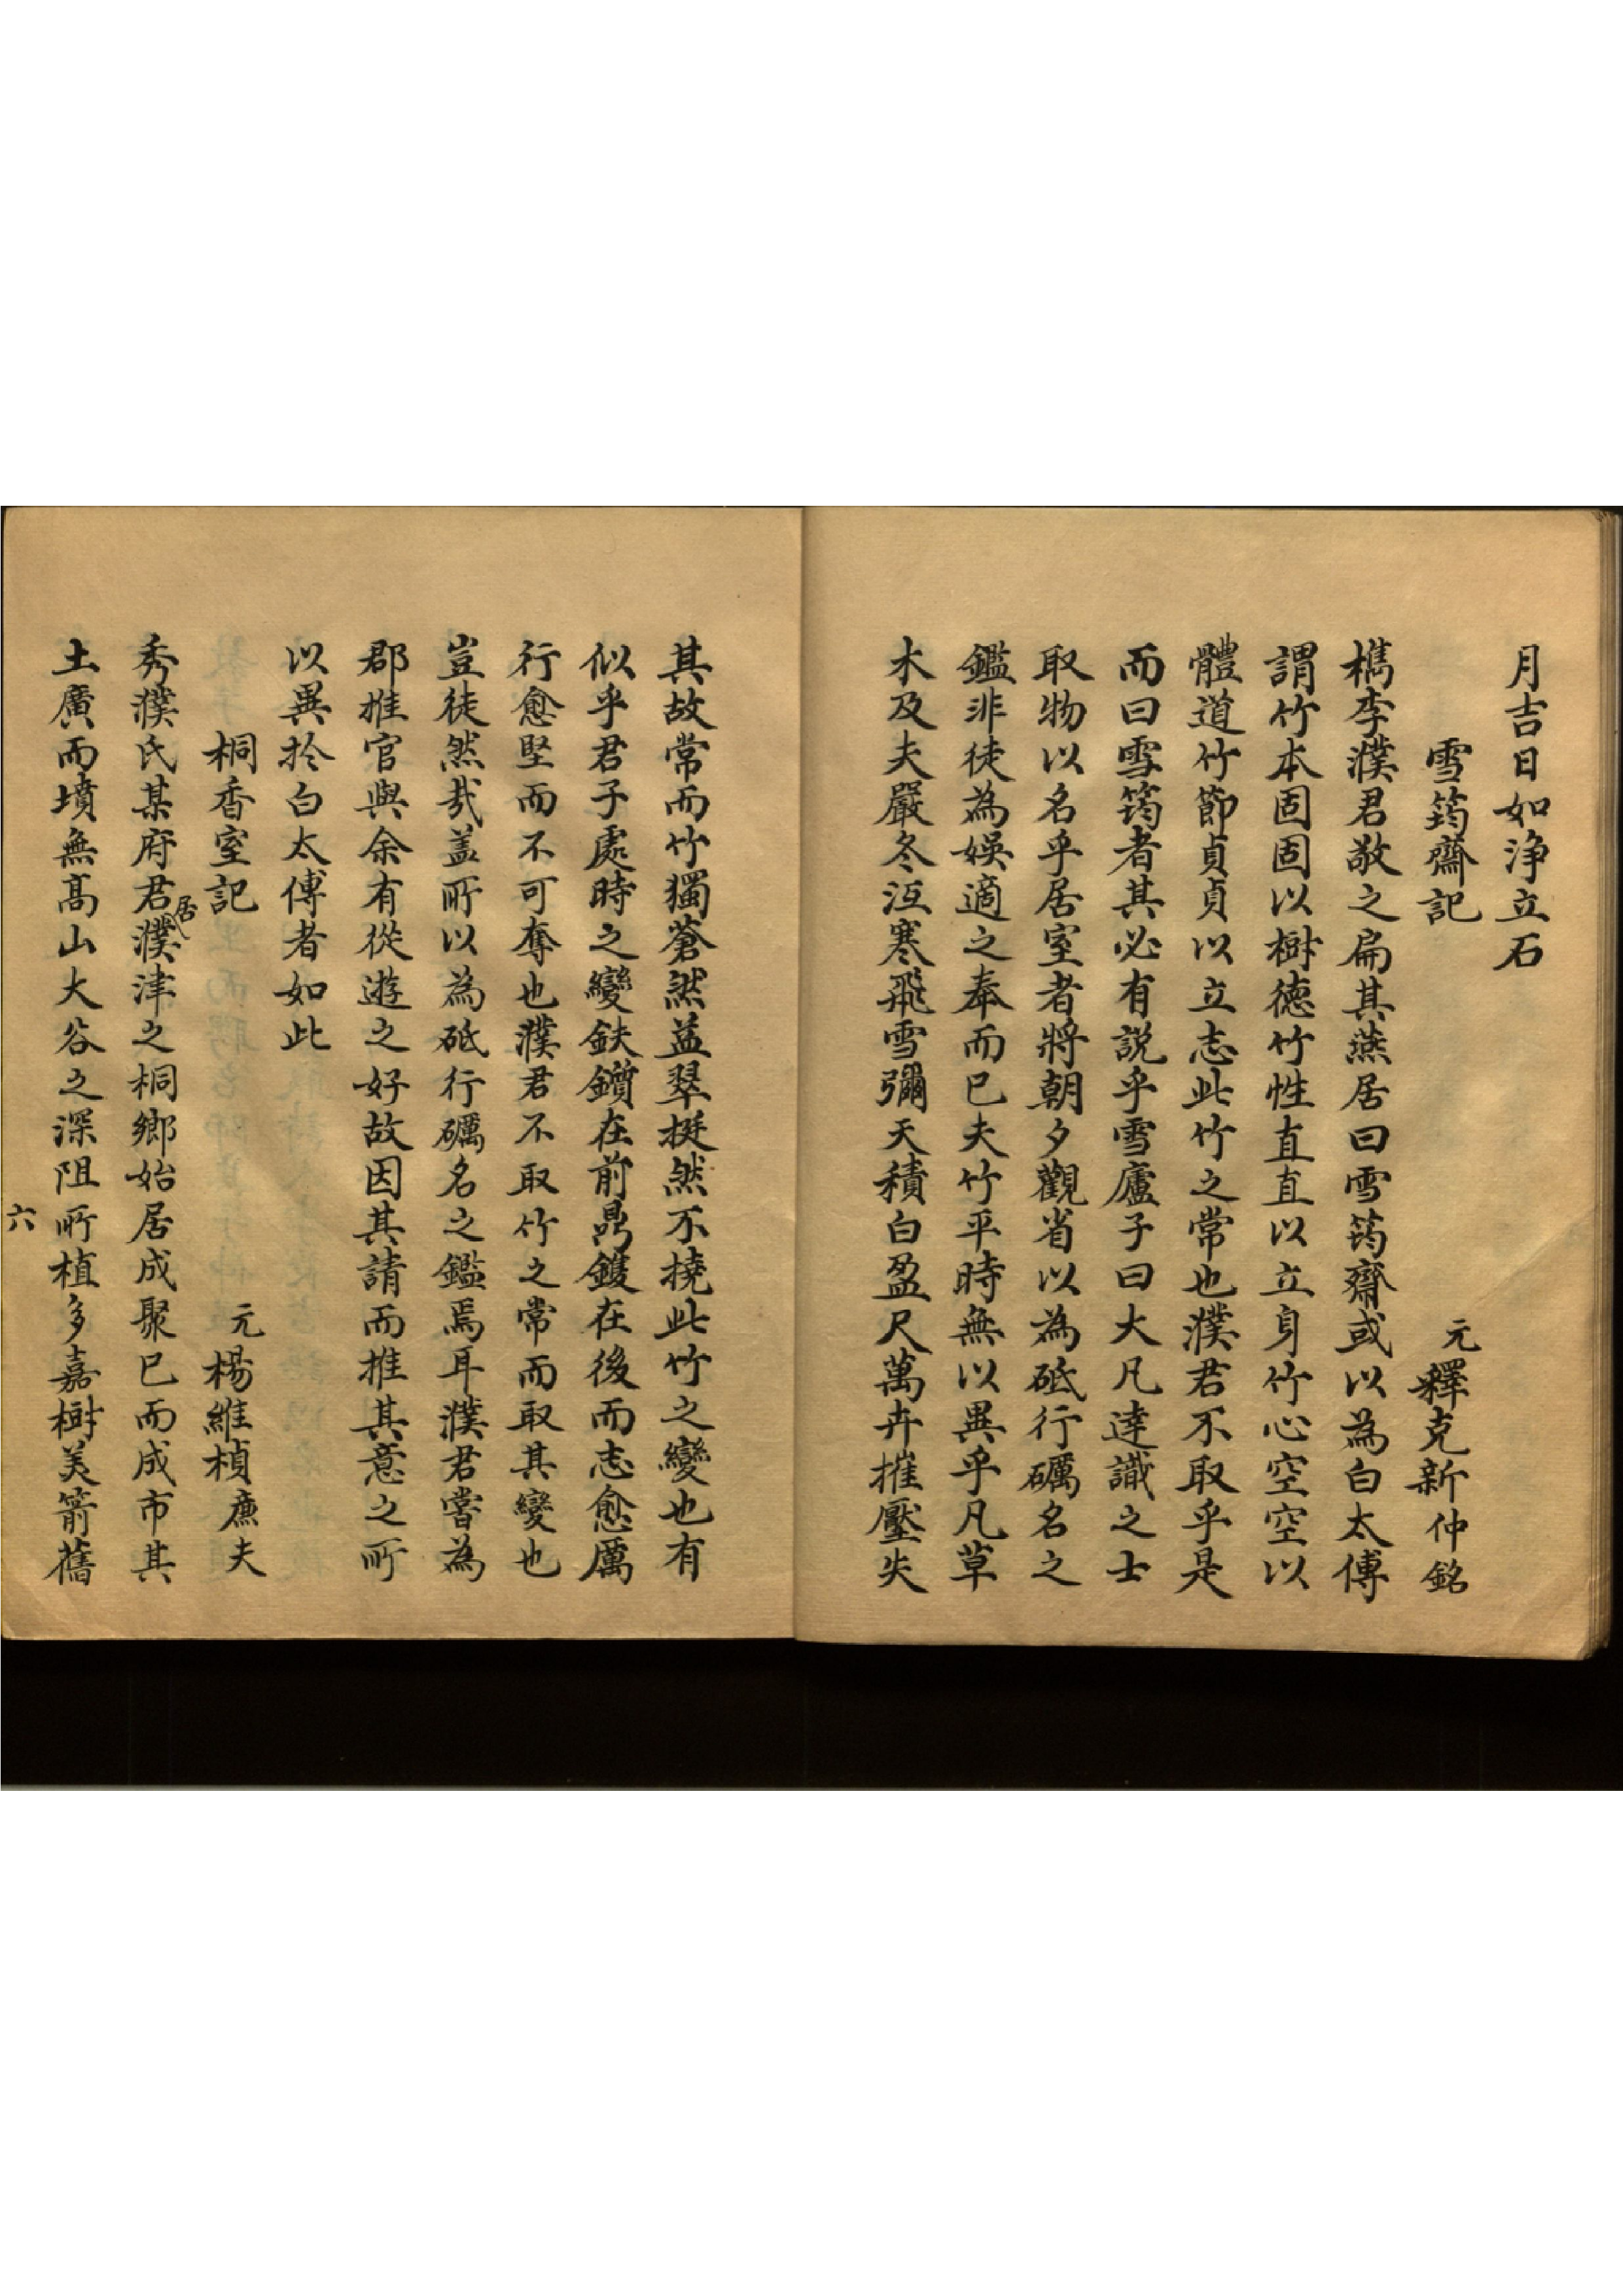 月吉日如淨立石
雪筠齋記　元釋克新仲銘
檇李濮君敬之扁其燕居曰雪筠齋或以為白太傅
謂竹本固固以樹德竹性直直以立身竹心空空以
體道竹節貞貞以立志此竹之常也濮君不取乎是
而曰雪筠者其必有說乎雪廬子曰大凡達識之士
取物以名乎居室者將朝夕觀省以為砥行礪名之
鑑非徒為娛適之奉而已夫竹平時無以異乎凡草
木及夫嚴冬沍寒飛雪彌天積白盈尺萬卉摧壓失
其故常而竹獨蒼然益翠挺然不撓此竹之變也有
似乎君子處時之變鈇鑕在前鼎鑊在後而志愈厲
行愈堅而不可奪也濮君不取竹之常而取其變也
豈徒然哉蓋所以為砥行礪名之鑑焉耳濮君嘗為
郡推官與余有從遊之好故因其請而推其意之所
以異於白太傅者如此
桐香室記　元楊維楨廉夫
秀濮氏某府君居濮津之桐鄉始居成聚已而成市其
土廣而墳無高山大谷之深阻所植多嘉樹美箭舊
六